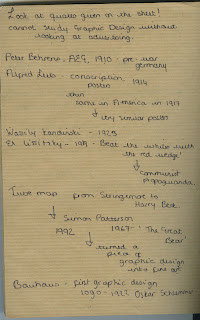 Look at quotes given on the sheet!
cannot study Graphic Design without
looking at advertising.
Peter Behrens, AEG, 1910 - pre-war
germany
Alfred Leete - conscription
poster 1914
then
same in America in 1917
very similar poster
Wassily Kandinski - 1925
El Lissitsky - 1919 - 'Beat the whites with
the red wedge'
communist
Propaganda.
Tube map from Stringemore to
Harry Beck
Simon Patterson
1992 1967- 'The Great
Bear'
turned a
piece of
graphic design
into fine art
Bauhaus - first graphic design
logo - 1923 Oskar Schlemmer